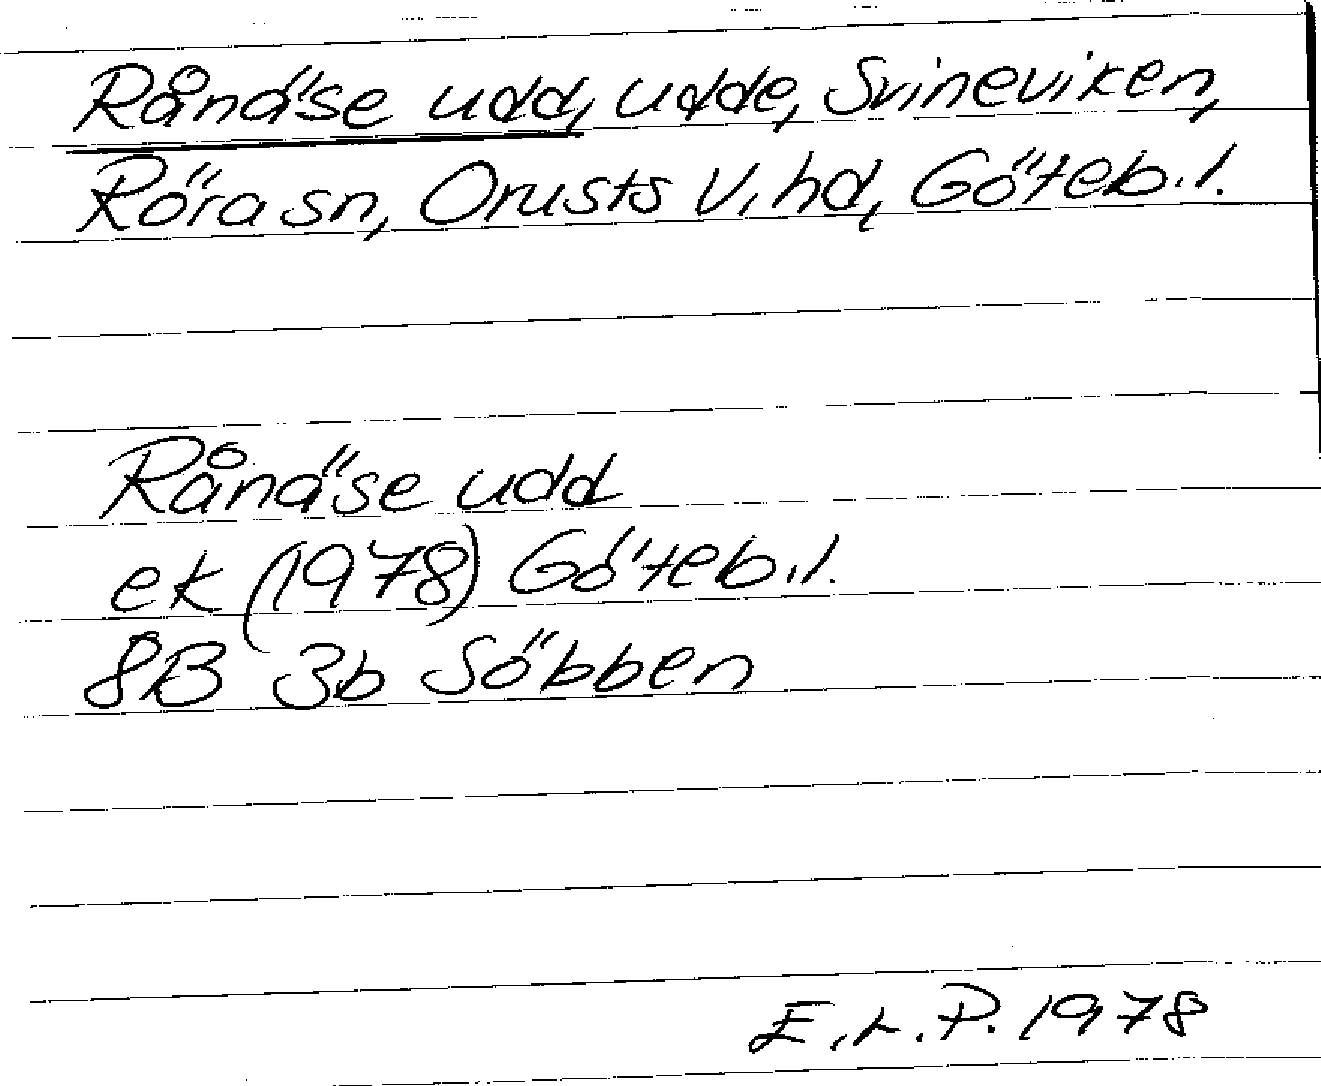 Rånäse udd, udde, Svineviken,
Röra sn, Orusts V. hd, Göteb. l.
Rånäse udd
ek (1978) Göteb. l.
8B 3b Söbben
E. L. P. 1978